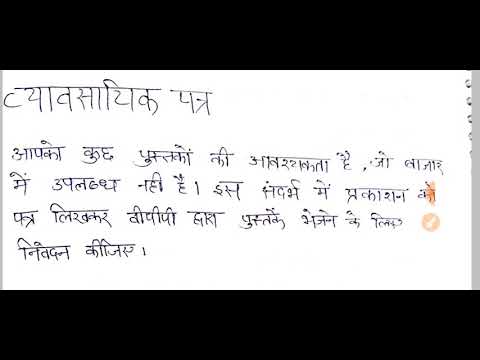 व्यावसायिक पत्र
आपको कुछ पुस्तकों की आवश्यकता है, जो बाजार
में उपलब्ध नही है। इस संदर्भ में प्रकाशन को
पत्र लिखकर वीपीपी द्वारा पुस्तकें भेजने के लिए
निवेदन कीजिए।